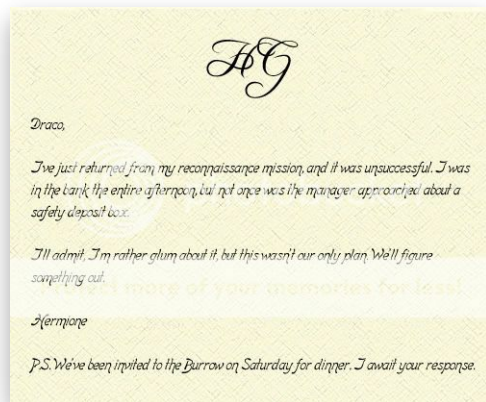 HG
Draco,
I've just returned from my reconnaissance mission, and it was unsuccessful. I was
in the bank the entire afternoon, but not once was the manager approached about a
safety deposit box.
I'll admit, I'm rather glum about it, but this wasn't our only plan. We'll figure
something out.
Protect more of your memories for less!
Hermione
P.S. We've been invited to the Burrow on Saturday for dinner. I await your response.